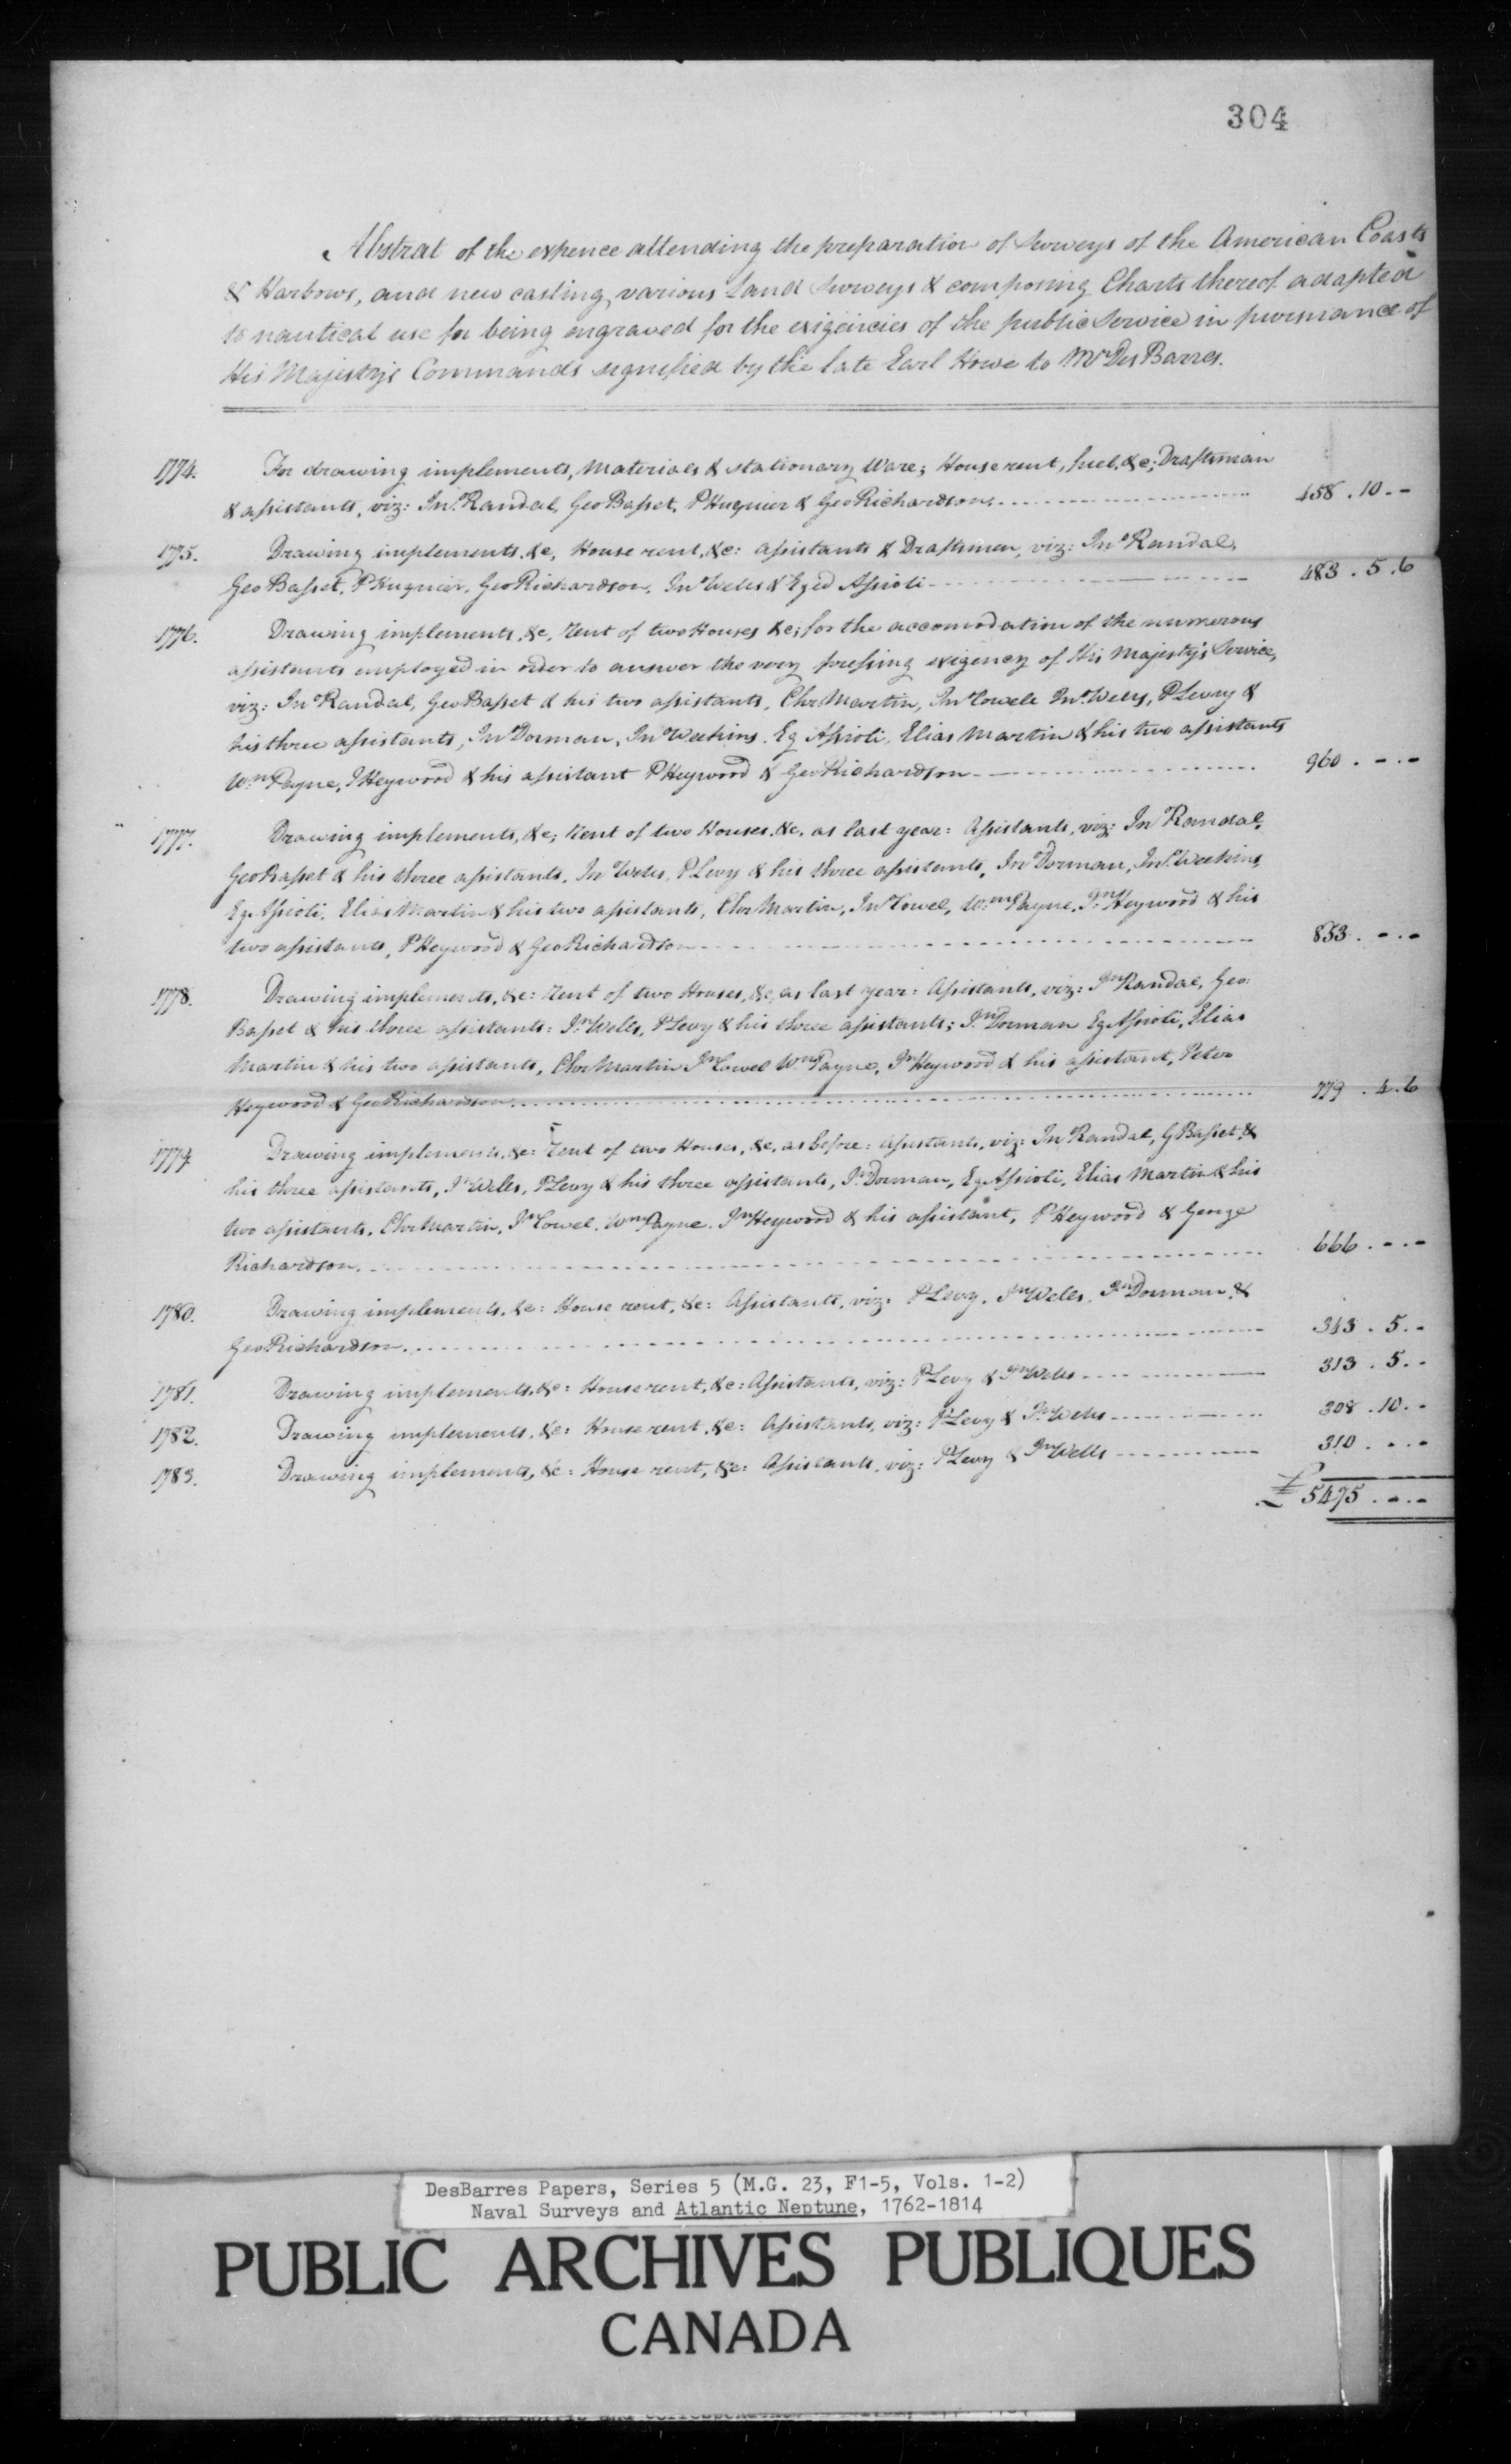 304
Abstrat of the expence attending the preparation of Surveys of the American Coasts
& Harbours, and new casting various Land Surveys & composing Charts thereof adapted
to nautical use for being engraved for the exigencies of the public Service in pursuance of
His Majesty's Commands signified by the late Earl Howe to Mr Des Barres.
1774. For drawing implements, Materials & stationary Ware; House rent, fuel, &c; Draftsman
& assistants, viz: Jno. Randal, Geo Basset, P Huquier & Geo Richardson. 458 . 10 . -
1775. Drawing implements, &c, House rent, &c: assistants & Draftsmen, viz: Jno Randal,
Geo Basset, P Huquier, Geo Richardson, Jno Wells & Egid Assioti 483 . 5 . 6
1776. Drawing implements, &c, rent of two Houses &c; for the accomodation of the numerous
assistants employed in order to answer the very pressing exigency of His Majesty's Service,
viz: Jno Randal, Geo Basset & his two assistants, Chr Martin, Jno Cowell Jno. Wells, P Levy &
his three assistants, Jno Dorman, Jno Weekins, Eg Assioti, Elias Martin & his two assistants
Wm. Payne, J Heywood & his assistant P Heywood & Geo Richardson 960 . - . -
1777. Drawing implements, &c; Rent of two Houses, &c, as last year: Assistants, viz: Jno Randal,
Geo Basset & his three assistants, Jno Wells, P Levy & his three assistants, Jno Dorman, Jno. Weekins,
Eg. Assioti, Elias Martin & his two assistants, Chr Martin, Jno Cowel, Wm. Payne, Jn. Heywood & his
two assistants, P Heywood & Geo Richardson 853 . - . -
1778. Drawing implements, &c: Rent of two Houses, &c, as last year: Assistants, viz: Jn Randal, Geo:
Basset & his three assistants: Jn. Wells, P Levy & his three assistants; Jn. Dorman Eg. Assioti, Elias
Martin & his two assistants, Chr Martin Jn Cowel Wm. Payne, Jn Heywood & his assistant, Peter
Heywood & Geo Richardson 779 . 4 . 6
1779 Drawing implements, &c: Rent of two Houses, &c, as before: assistants, viz: Jn Randal, G Basset, &
his three assistants, Jn Wells, P Levy & his three assistants, Jn. Dorman, Eg. Assioti, Elias Martin & his
two assistants, Chr Martin, Jn Cowel, Wm Payne, Jn Heywood & his assistant, P Heywood & George
Richardson. 666 . - . -
1780. Drawing implements, &c: House rent, &c: Assistants, viz: P Levy, Jn Wells, Jn Dorman, &
Geo Richardson. 343 . 5 . -
1781. Drawing implements, &c: House rent, &c: Assistants, viz: P Levy & Jn Wells 313 . 5 . -
1782. Drawing implements, &c: House rent, &c: Assistants, viz: P Levy & Jn. Wells 308 . 10 . -
1783. Drawing implements, &c: House rent, &c: Assistants, viz: P Levy & Jn Wells 310 . - . -
£ 5475 . - . -
DesBarres Papers, Series 5 (M.G. 23, F1-5, Vols. 1-2)
Naval Surveys and Atlantic Neptune, 1762-1814
PUBLIC ARCHIVES PUBLIQUES
CANADA